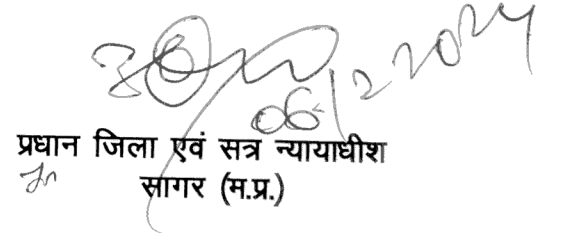 06/2 2024
प्रधान जिला एवं सत्र न्यायाधीश
सागर (म.प्र.)